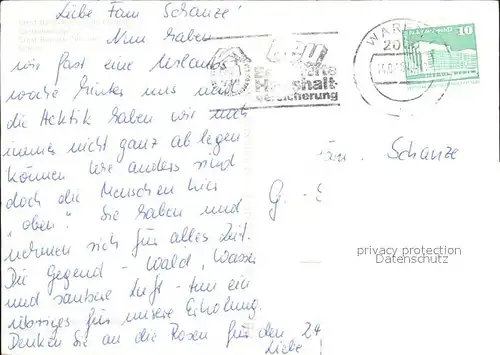 Liebe Fam Schanze!
Nun haben
wir fast eine Urlaubs
woche hinter uns und
die Hektik haben wir noch
immer nicht ganz ablegen
können wie anders sind
doch die Menschen hier
"oben". Sie haben und
nehmen sich für alles Zeit.
Die Gegend - Wald, Wasser
und saubere Luft - tun ein
übriges für unsere Erholung.
Denken Sie an die Rosen für den 24
Liebe
Haushalt-
versicherung
WAREN
20
10
Fam. Schanze
G.
privacy protection
Datenschutz